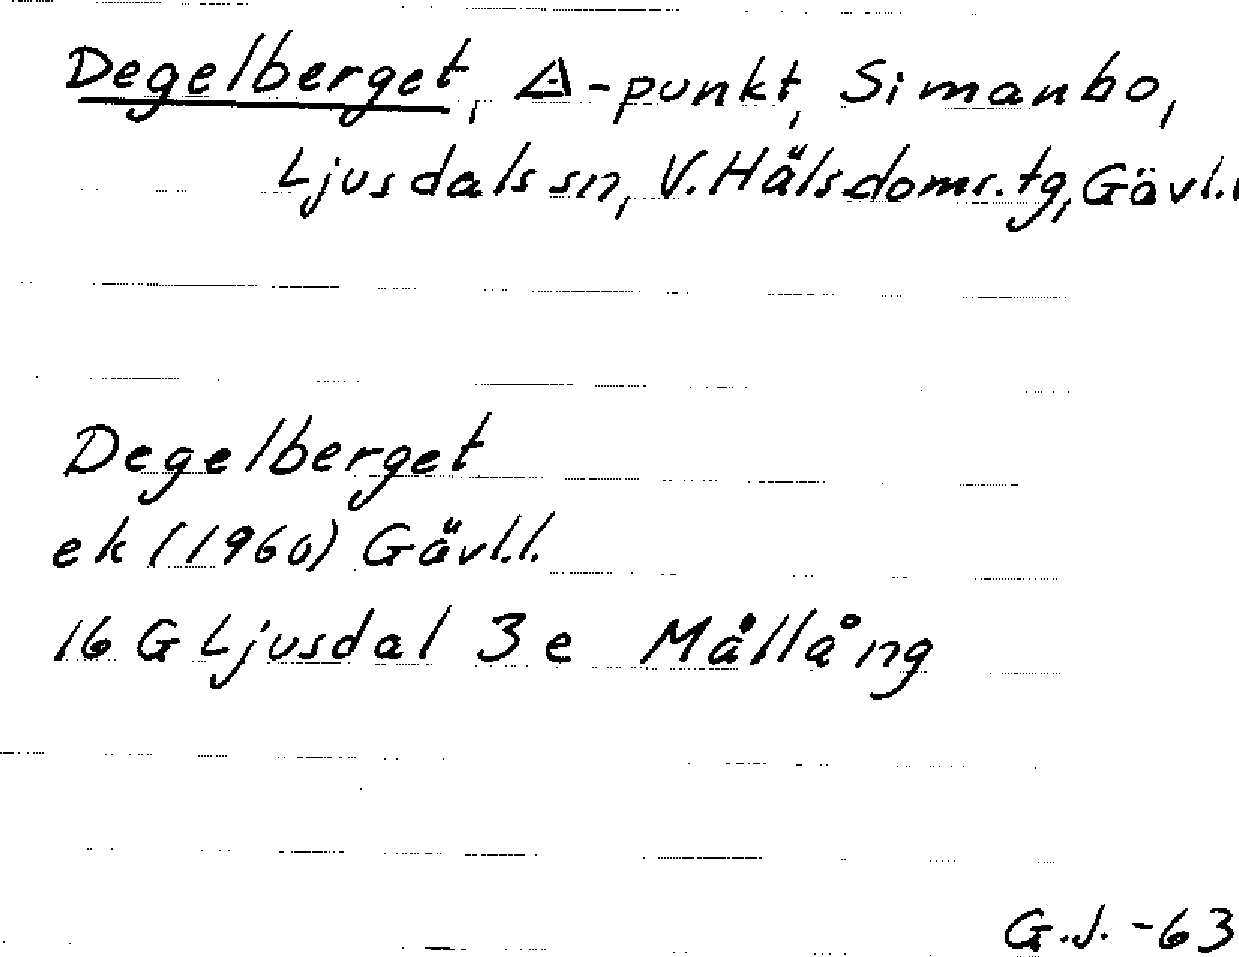 Degelberget, △-punkt, Simanbo,
Ljusdals sn, V. Hälsdoms. tg, Gävl.l
Degelberget
ek (1960) Gävl.l.
16 G Ljusdal 3 e Mållång
G.J. -63